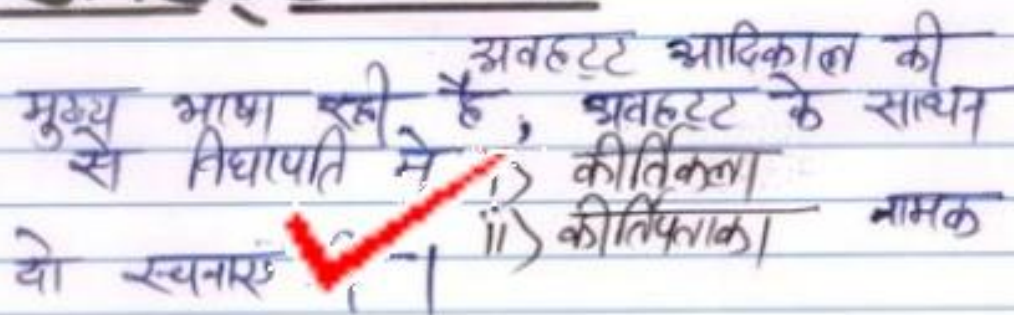 अवहट्ट आदिकाल की
मुख्य भाषा रही है, अवहट्ट के साधन
से विद्यापति ने i) कीर्तिकला
ii) कीर्तिपताका नामक
दो रचनाएं